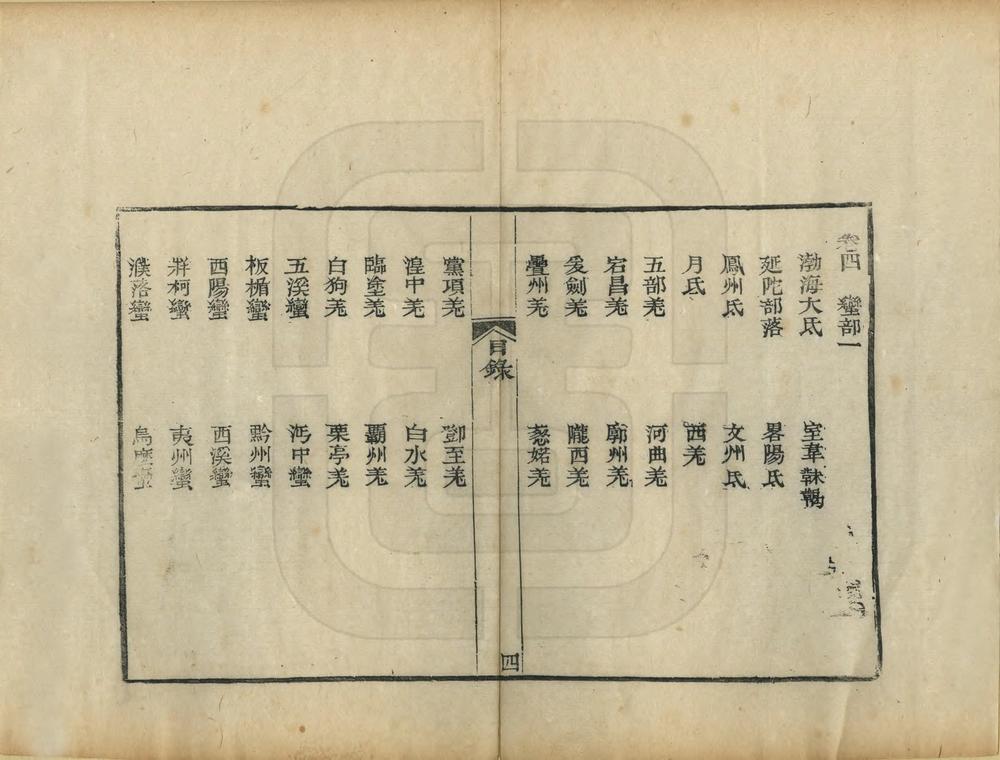 卷四　蠻部一
渤海大氏　室韋靺鞨
延陀部落　畧陽氏
鳳州氏　文州氏
月氏　西羌
五部羌　河曲羌
宕昌羌　廓州羌
爰劍羌　隴西羌
疊州羌　葱婼羌
目錄
四
黨項羌　鄧至羌
湟中羌　白水羌
臨塗羌　覇州羌
白狗羌　栗亭羌
五溪蠻　沔中蠻
板楯蠻　黔州蠻
西陽蠻　西溪蠻
牂柯蠻　夷州蠻
濮落蠻　烏蠻